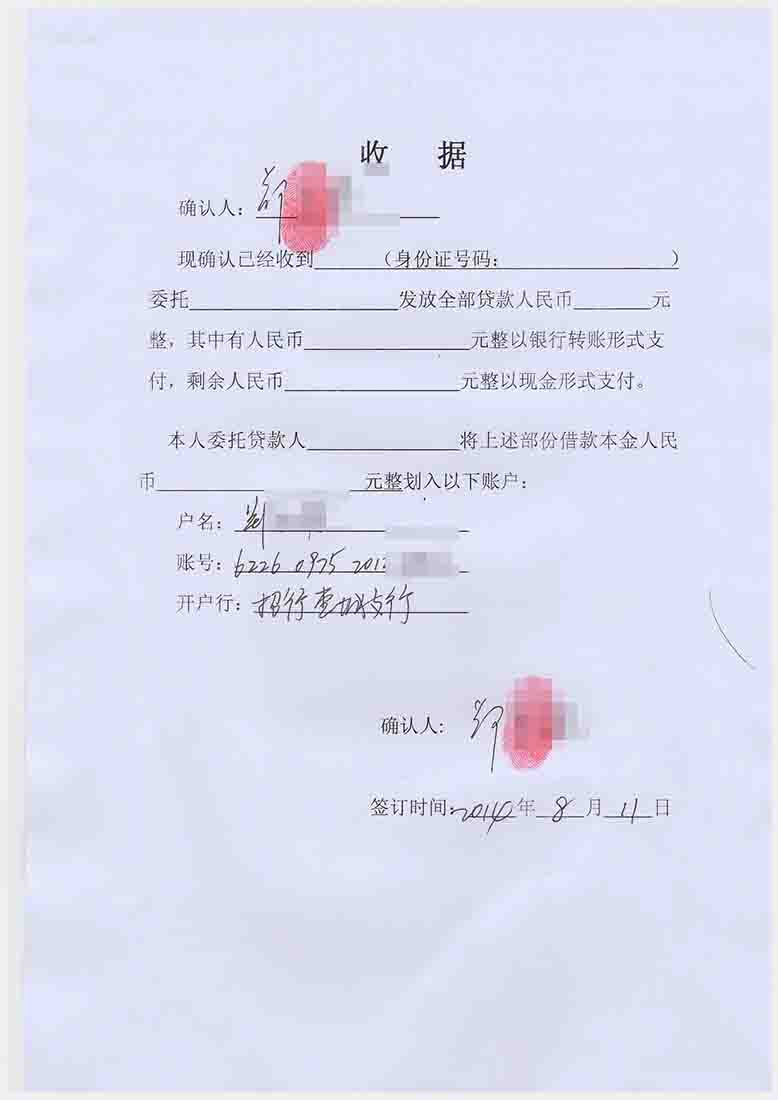 收 据
确认人：郑
现确认已经收到______（身份证号码：____________）
委托____________发放全部贷款人民币______元
整，其中有人民币____________元整以银行转账形式支
付，剩余人民币____________元整以现金形式支付。
本人委托贷款人____________将上述部份借款本金人民
币____________元整划入以下账户：
户名：郑
账号：6226 0975 201
开户行：招行 支行
确认人：郑
签订时间：2014年8月11日